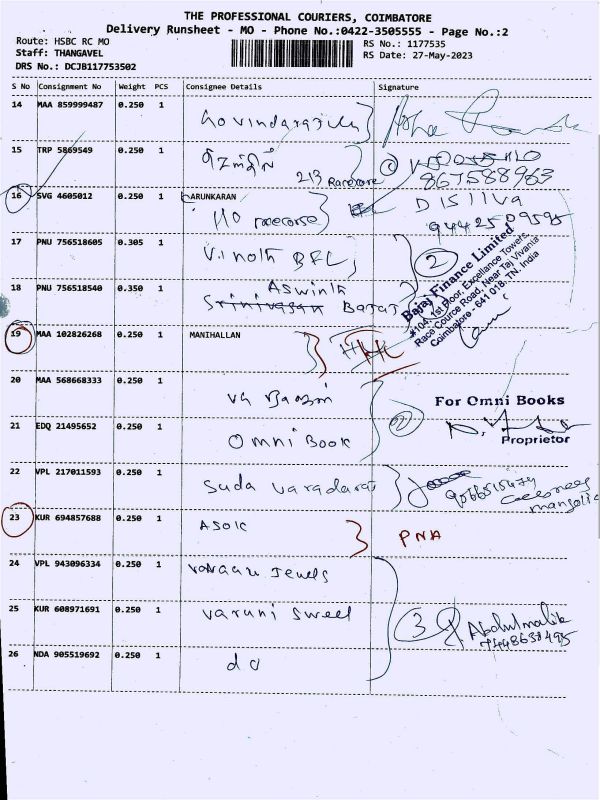 THE PROFESSIONAL COURIERS, COIMBATORE
Delivery Runsheet - MO - Phone No.:0422-3505555 - Page No.:2
Route: HSBC RC MO
RS No.: 1177535
Staff: THANGAVEL
RS Date: 27-May-2023
DRS No.: DCJB117753502
S No Consignment No Weight PCS Consignee Details Signature
14 MAA 859999487 0.250 1
Govindarajulu
15 TRP 5869549 0.250 1
213 Racecorse
867588963
16 SVG 4605012 0.250 1 ARUNKARAN
110 racecorse
DISILVA
9442509595
17 PNU 756518605 0.305 1
Vinoth BFL
2
Bajaj Finance Limited
#104, 1st Floor, Excellance Towers,
Race Cource Road, Near Taj Vivanta
Coimbatore - 641 018, TN. India
18 PNU 756518540 0.350 1
Aswinth
Srinivasan Bajaj
19 MAA 102826268 0.250 1 MANIHALLAN
20 MAA 568668333 0.250 1
For Omni Books
Proprietor
21 EDQ 21495652 0.250 1
Omni Book
22 VPL 217011593 0.250 1
Suda Varadaraj
23 KUR 694857688 0.250 1
ASOK
PNA
24 VPL 943096334 0.250 1
Jewels
25 KUR 608971691 0.250 1
Varuni Sweet
3 Abdulmalik
26 NDA 905519692 0.250 1
do